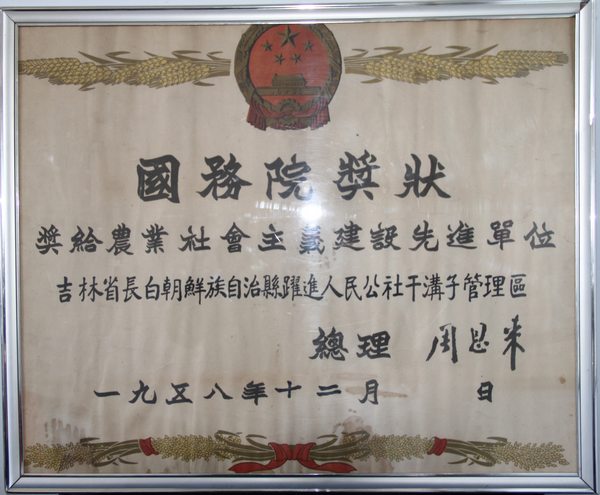 國務院獎狀
獎給農業社會主義建設先進單位
吉林省長白朝鮮族自治縣躍進人民公社干溝子管理區
總理 周恩来
一九五八年十二月 日